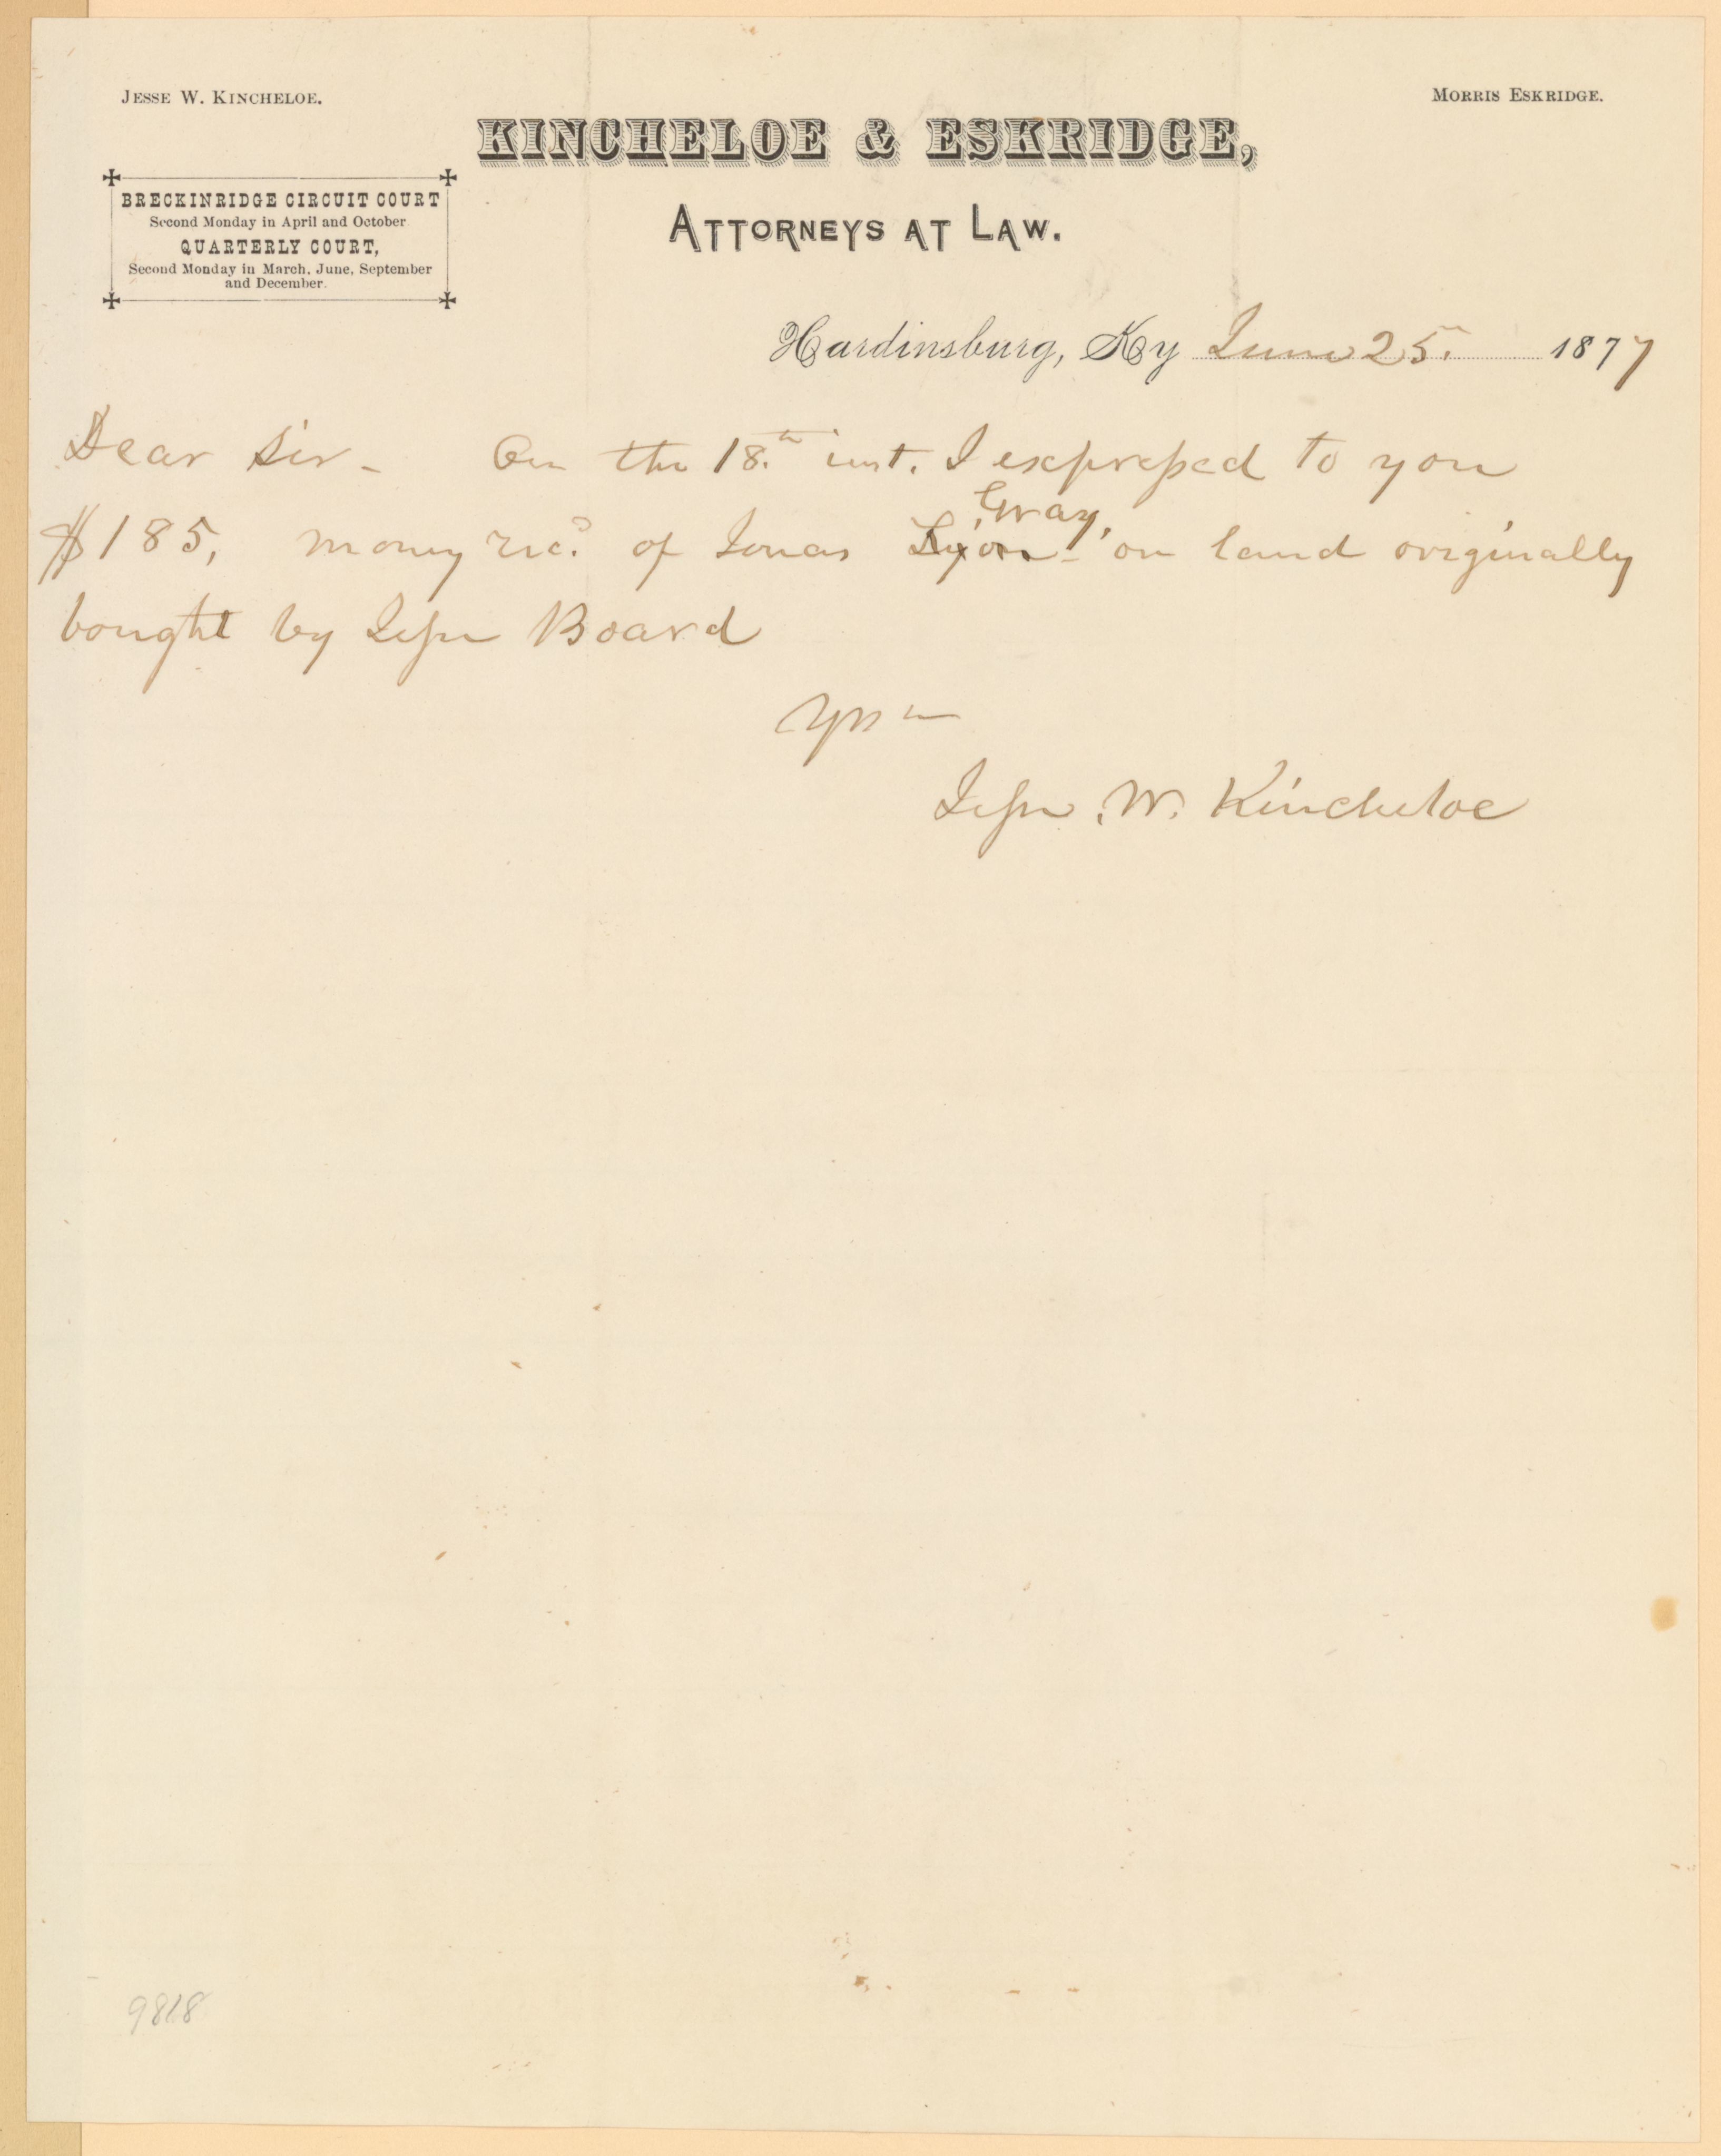 JESSE W. KINCHELOE.
MORRIS ESKRIDGE.
KINCHELOE & ESKRIDGE,
ATTORNEYS AT LAW.
BRECKINRIDGE CIRCUIT COURT
Second Monday in April and October
QUARTERLY COURT,
Second Monday in March, June, September
and December.
Hardinsburg, Ky June 25th 1877
Dear Sir - On the 18th inst. I expressed to you
Gray,
$185, money recd. of Jonas Lyon - on land originally
bought by Jesse Board
Yrs
Jesse W. Kincheloe
9818